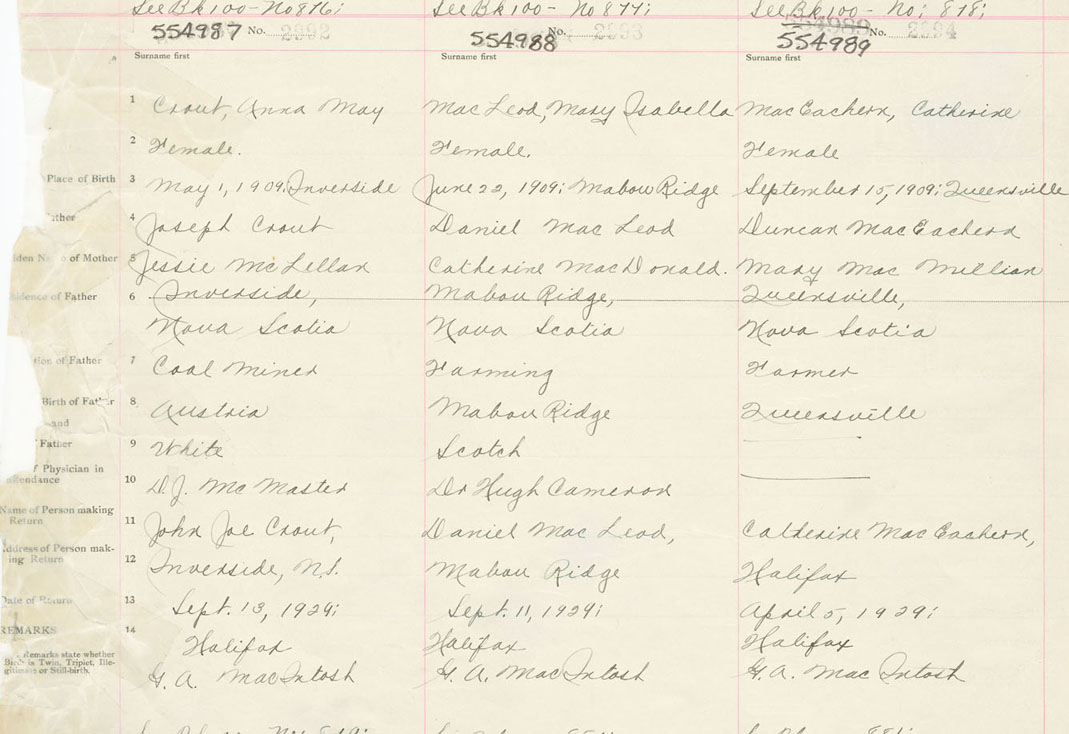 See Bk 100 - No 876;
See Bk 100 - No 877;
See Bk 100 - No; 878;
554987 No. 2992
554988 No. 2993
554989 No. 2994
554989
Surname first
Surname first
Surname first
1 Crout, Anna May
Mac Leod, Mary Isabella
Mac Eachern, Catherine
2 Female.
Female.
Female
Place of Birth 3 May 1, 1909; Inverside
June 22, 1909; Mabou Ridge
September 15, 1909; Queensville
ather 4 Joseph Crout
Daniel Mac Leod
Duncan Mac Eachern
iden Na o of Mother 5 Jessie McLellan
Catherine MacDonald.
Mary Mac Millian
sidence of Father 6 Inverside,
Mabou Ridge,
Queensville,
Nova Scotia
Nova Scotia
Nova Scotia
tion of Father 7 Coal Miner
Farming
Farmer
Birth of Father 8 Austria
Mabou Ridge
Queensville
and
Father 9 White
Scotch
f Physician in
attendance 10 D.J. McMaster
Dr Hugh Cameron
Name of Person making
Return 11 John Joe Crout,
Daniel Mac Leod,
Catherine Mac Eachern,
Address of Person mak-
ing Return 12 Inverside, N.S.
Mabou Ridge
Halifax
Date of Return 13 Sept. 13, 1929;
Sept. 11, 1929;
April 5, 1929;
REMARKS 14 Halifax
Halifax
Halifax
Remarks state whether
Birth is Twin, Triplet, Ille-
gitimate or Still-birth.
G. A. MacIntosh
G. A. MacIntosh
G. A. Mac Intosh